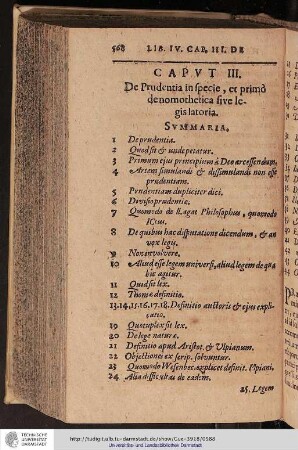 568 LIB. IV. CAP. III. DE
CAPVT III.
De Prudentia in specie, et primò
de nomothetica sive le-
gislatoria.
SVMMARIA.
1 De prudentia.
2 Quod sit & unde petatur.
3 Primum ejus principium à Deo arcessendum.
4 Artem simulandi & dissimulandi non esse
prudentiam.
5 Prudentiam dupliciter dici.
6 Divisio prudentiæ.
7 Quomodo de ll. agat Philosophus, quomodo
ICtus.
8 De quibus hac disputatione dicendum, & an
vox legis.
9 Non involvere.
10 Aliud esse legem universi, aliud legem de qua
hic agitur.
11 Quid sit lex.
12 Thomæ definitio.
13.14.15.16.17.18. Definitio auctoris & ejus expli-
catio.
19 Quotuplex sit lex.
20 De lege naturæ.
21 Definitio apud Aristot. & Ulpianum.
22 Objectiones ex scrip. solvuntur.
23 Quomodo Wesenbec. explicet definit. Ulpiani.
24 Alia difficultas de eadem.
25. Legem
TECHNISCHE
UNIVERSITÄT
DARMSTADT
Universitäts- und Landesbibliothek Darmstadt